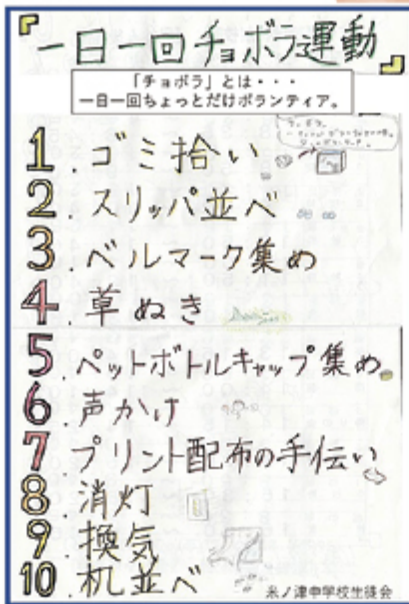 一日一回チョボラ運動
「チョボラ」とは・・・
一日一回ちょっとだけボランティア。
1.ゴミ拾い
2.スリッパ並べ
3.ベルマーク集め
4.草ぬき
5.ペットボトルキャップ集め
6.声かけ
7.プリント配布の手伝い
8.消灯
9.換気
10.机並べ
米ノ津中学校生徒会